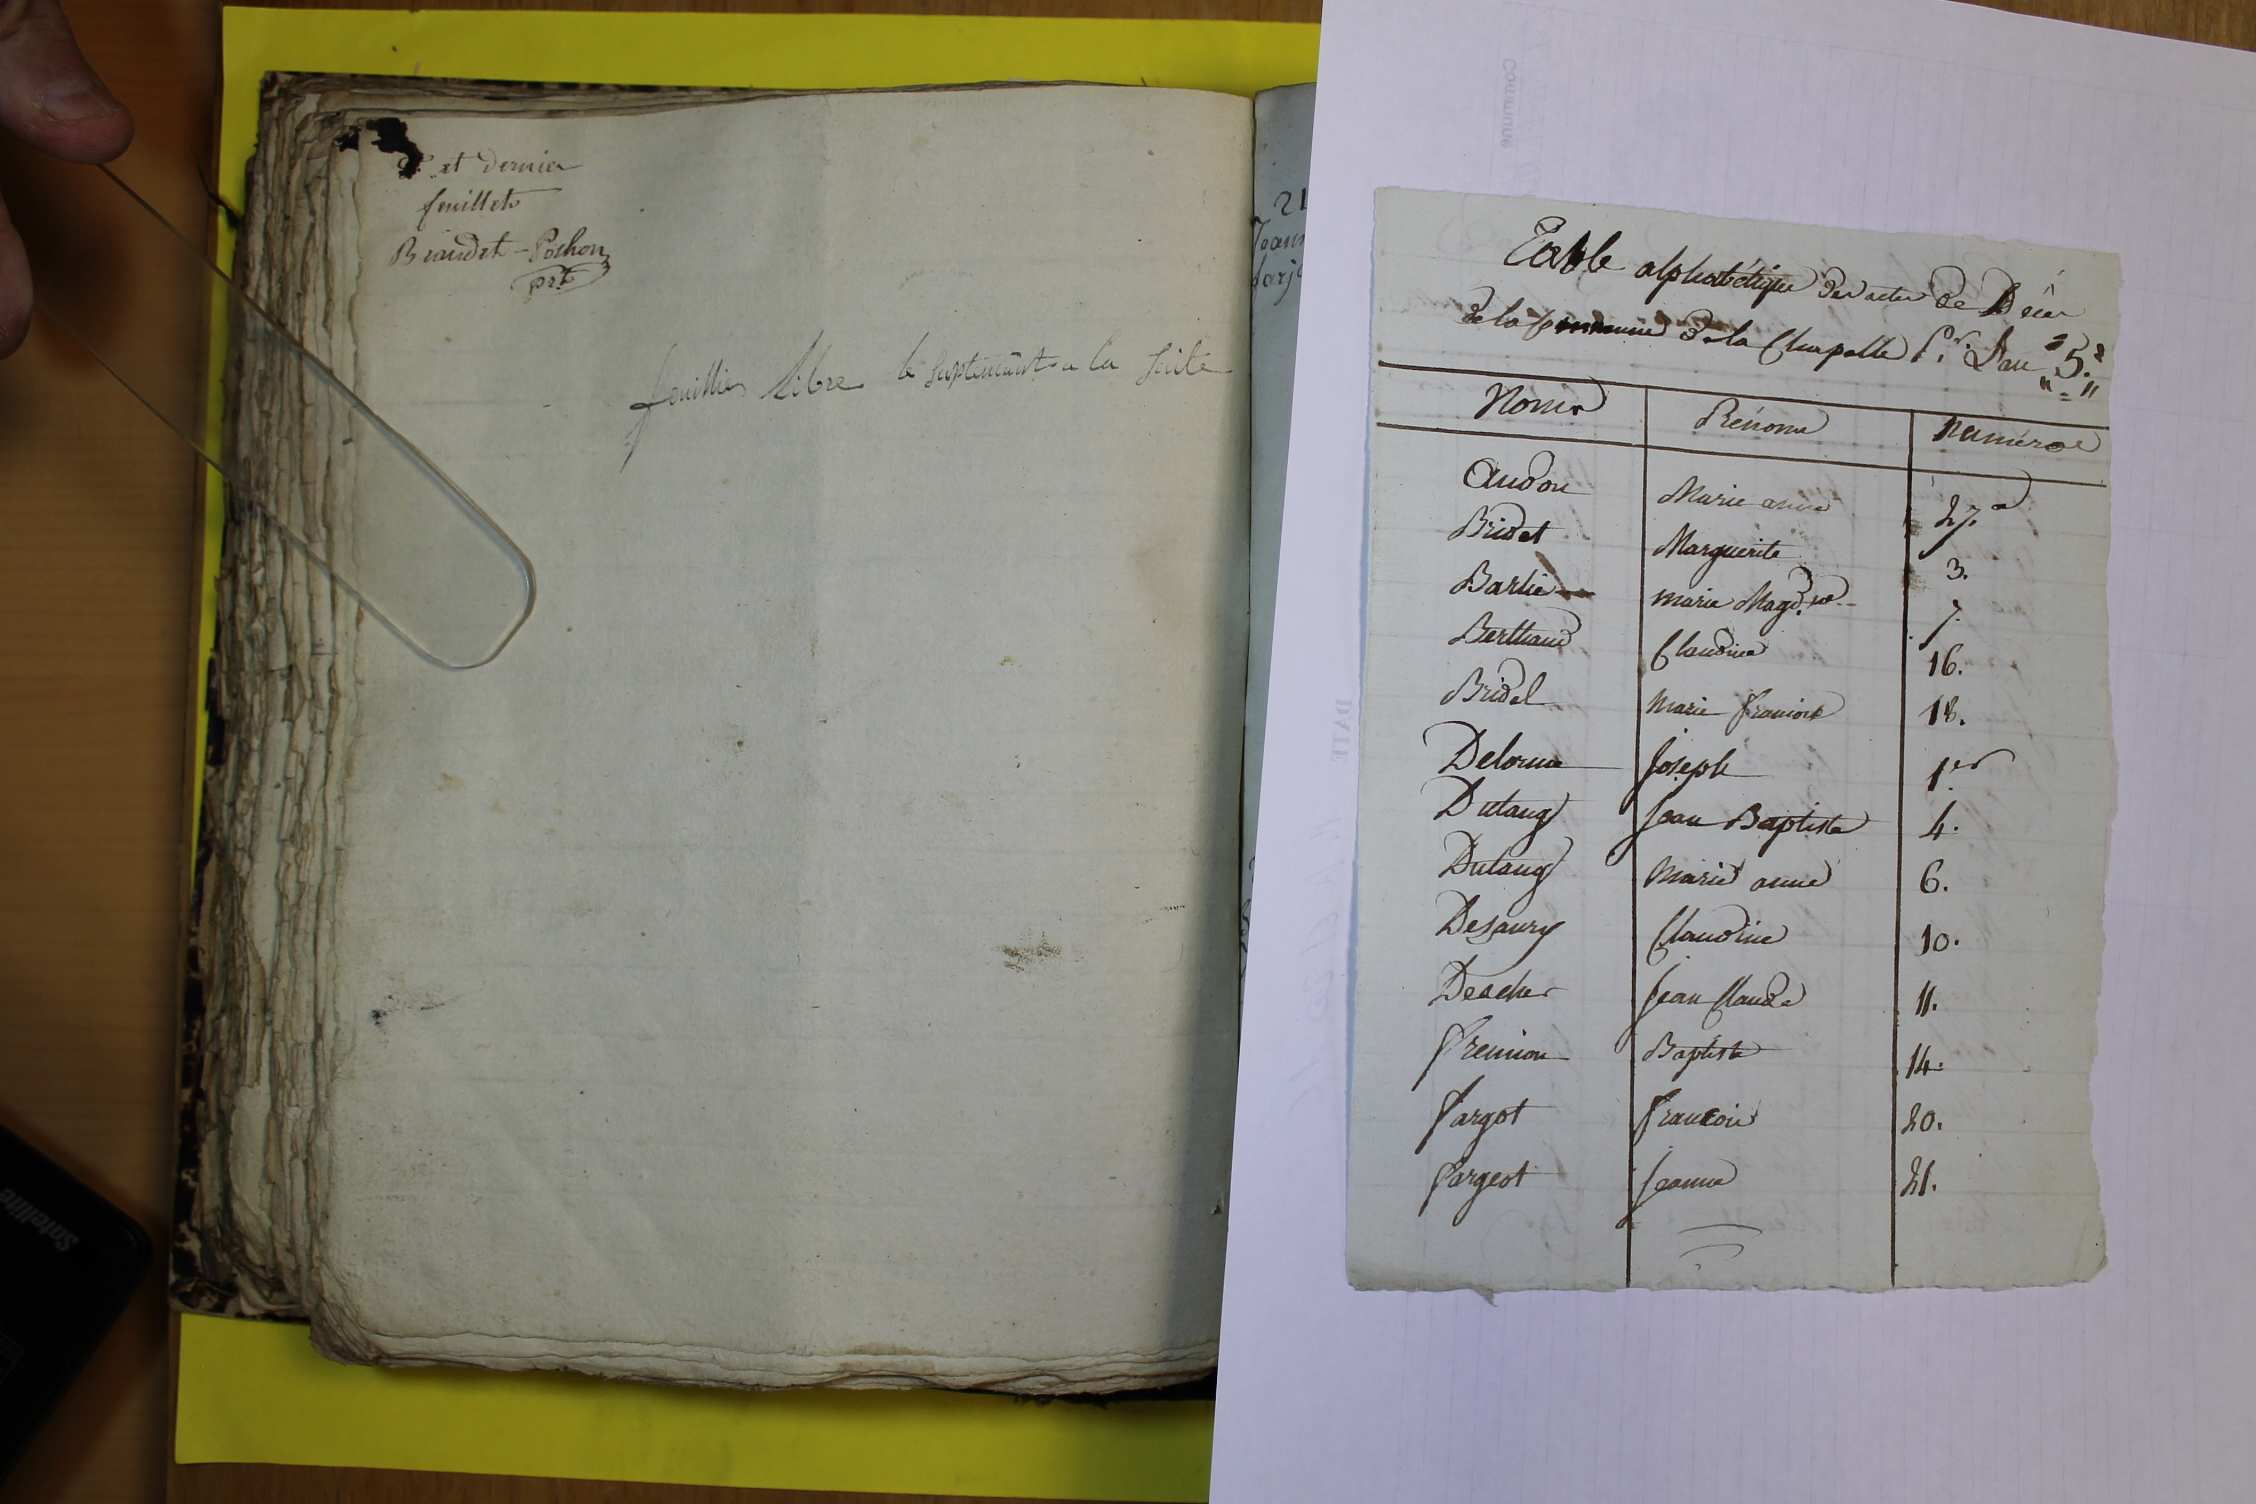 et dernier
feuillet
Beaudet-Pochon
pdt
feuillier libre le supléniant a la suite
21
Jean
farj
Table alphabétique des actes de Décès
de la Commune de la Chapelle Pr. L'an 5.
Noms Prénoms Numéros
Audon Marie anne 27.
Bridet Marguerite 3.
Barlie marie Magd.ne 7.
Berthaud Claudine 16.
Bridel Marie francoise 18.
Delorme Joseph 1er
Dutang Jean Baptiste 4.
Dutang Marie anne 6.
Desaury Claudine 10.
Descher Jean Claude 11.
fremion Baptiste 14.
fargot francois 20.
fargeot Jeanne 21.
Commune
DATE
Satellite